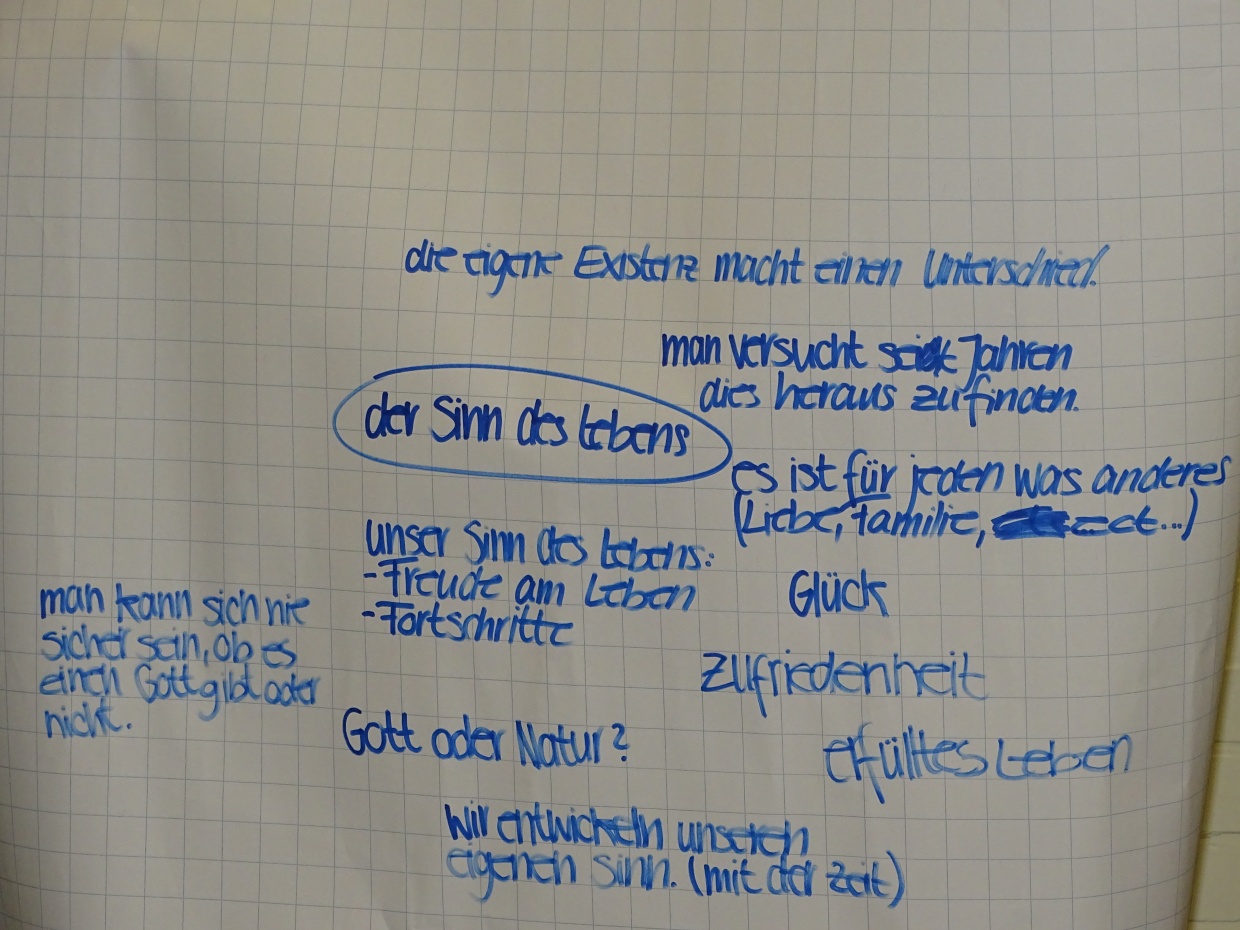 die eigene Existenz macht einen Unterschied.
man versucht seit Jahren
dies heraus zufinden.
der Sinn des Lebens
es ist für jeden was anderes
(Liebe, familie, ect...)
unser Sinn des Lebens:
- Freude am Leben
- Fortschritte
Glück
man kann sich nie
sicher sein, ob es
einen Gott gibt oder
nicht.
Zufriedenheit
Gott oder Natur?
erfülltes Leben
Wir entwickeln unseren
eigenen Sinn. (mit der Zeit)